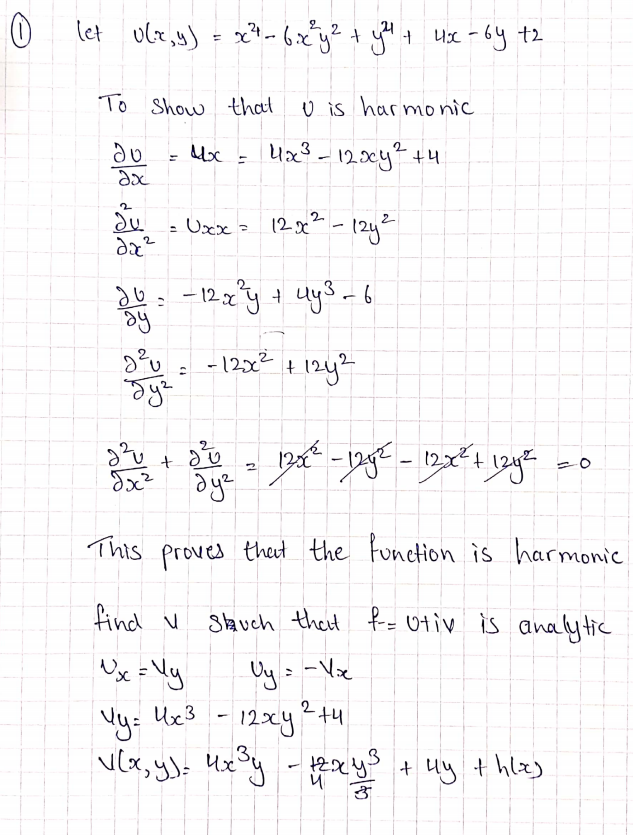 ① let u(x,y) = x⁴ - 6x²y² + y⁴ + 4x - 6y + 2
To show that u is harmonic
∂u/∂x = Ux = 4x³ - 12xy² + 4
∂²u/∂x² = Uxx = 12x² - 12y²
∂u/∂y = -12x²y + 4y³ - 6
∂²u/∂y² = -12x² + 12y²
∂²u/∂x² + ∂²u/∂y² = 12x² - 12y² - 12x² + 12y² = 0
This proves that the function is harmonic
find v such that f = u+iv is analytic
Ux = Vy Uy = -Vx
Vy = 4x³ - 12xy² + 4
V(x,y) = 4x³y - 12 4 x y³/3 + 4y + h(x)